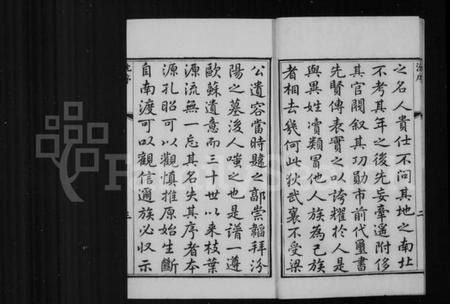 之名人貴仕不問其地之南北
不考其年之後先妄牽遥附侈
其官閥叙其功勛市前代璽書
先賢傳表實之以誇耀於人是
與異姓瀆類冒他人族為己族
者相去幾何此狄武襄不受梁
公遺容當時韙之郭崇韜拜汾
陽之墓後人嗤之也是譜一遵
歐蘇遺意而三十世以来枝葉
源流無一忘其名失其序者本
源孔昭可以觀慎推原始生斷
自南渡可以觀信邇族必収示